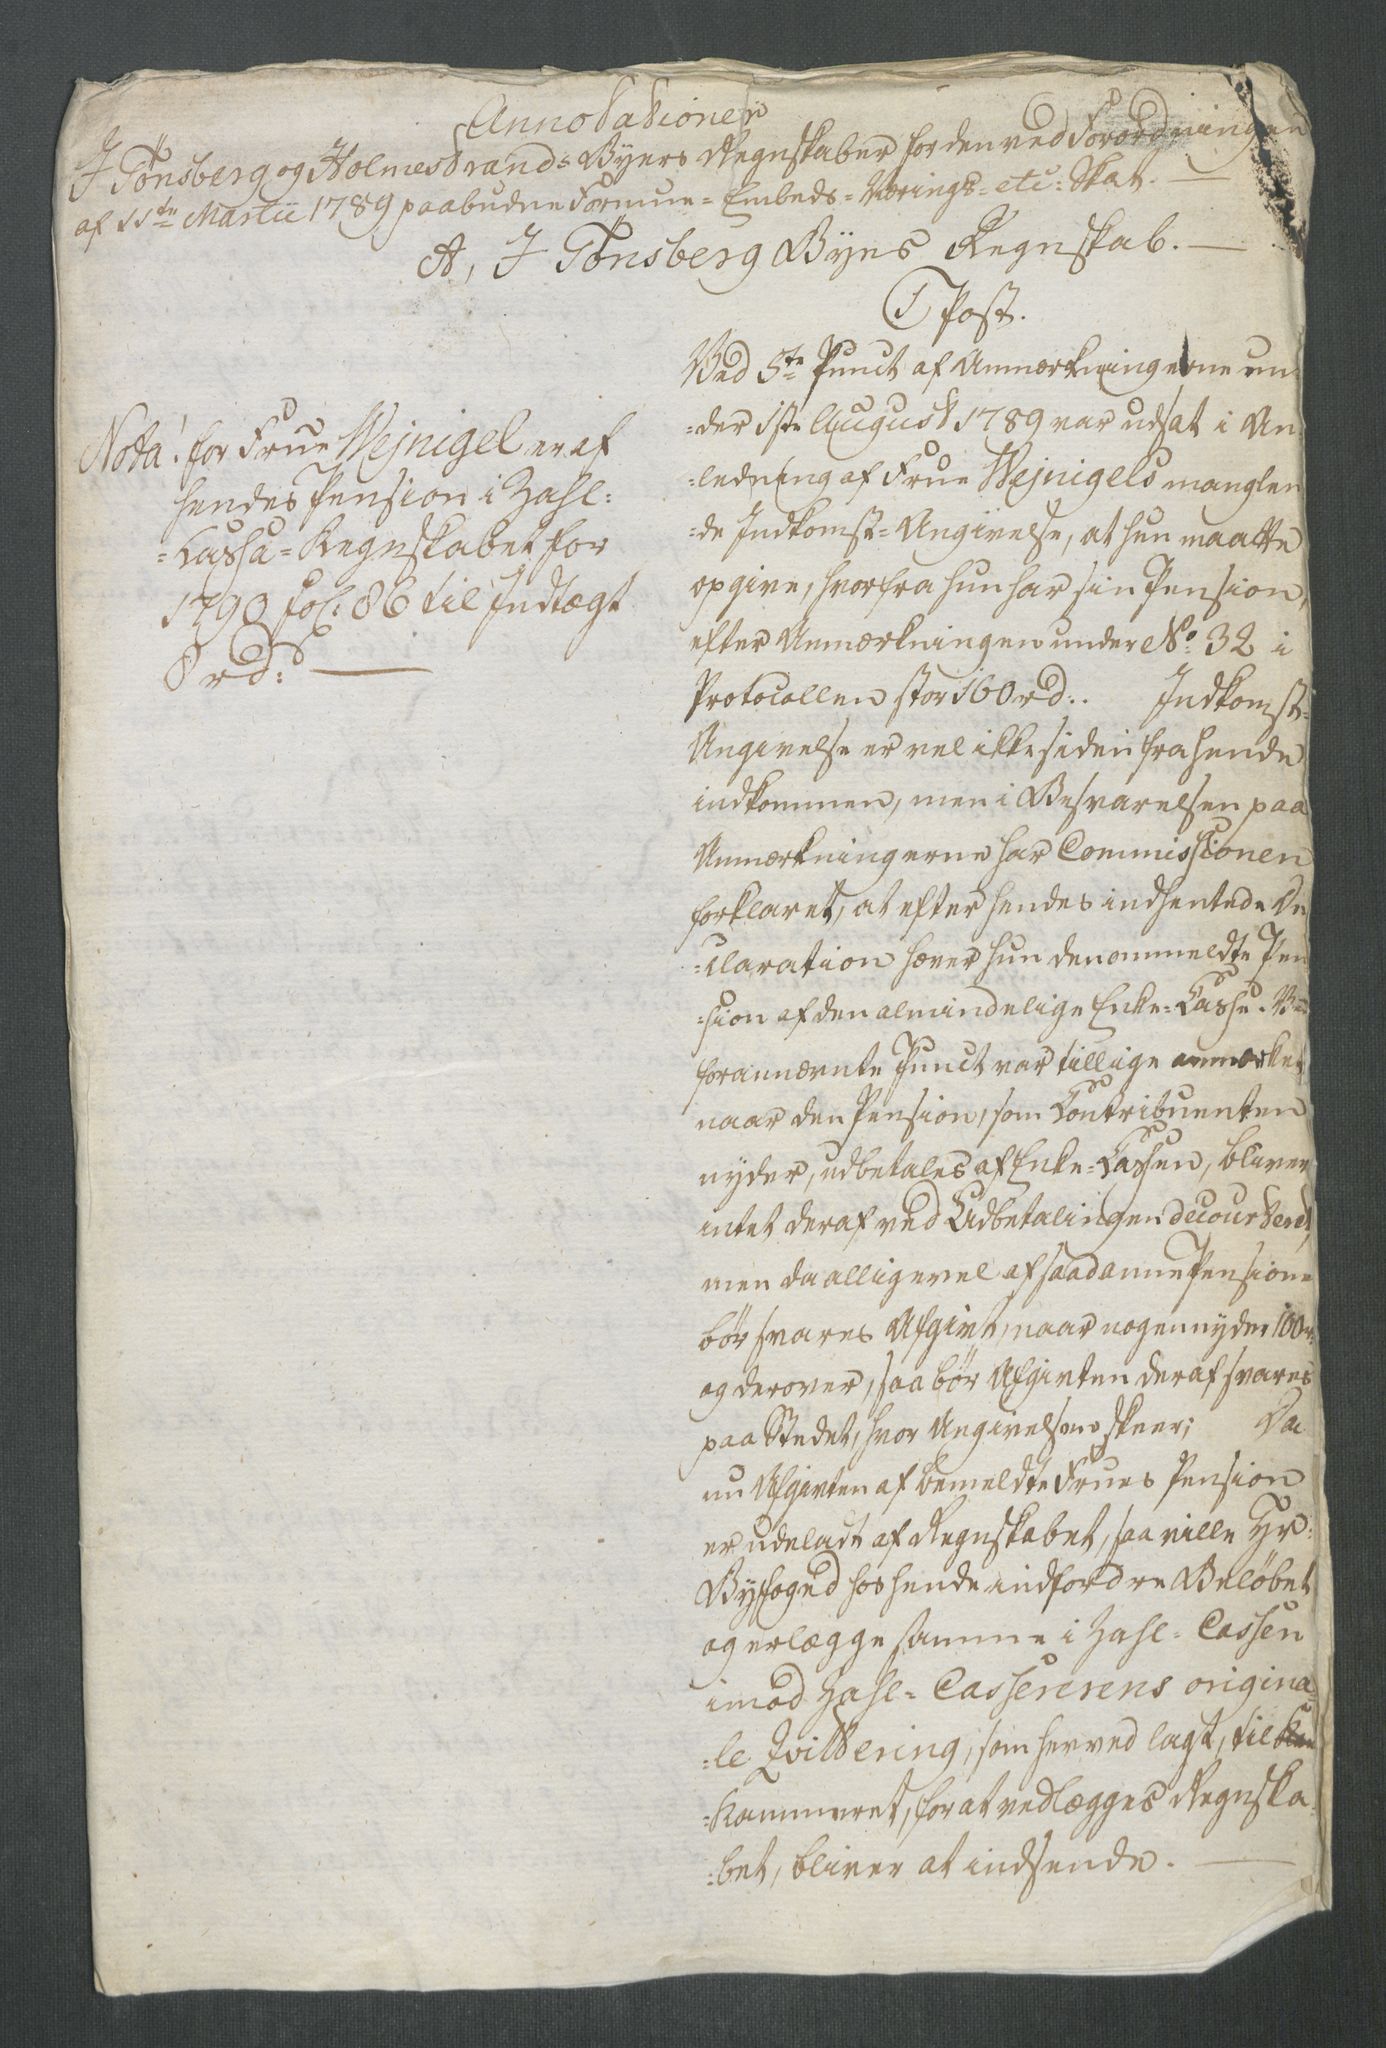 Annotationer
I Tønsberg og Holmestrands Byers Regnskaber for den ved Forordningen
af 11te Martii 1789 paabudne Formue- Embeds- Nærings- etc: Skat. —
A, I Tønsberg Byes Regnskab. —
1 Post.
Ved 5te Punct af Anmærkningerne un-
-der 1ste August 1789 var udsat i An-
-ledning af Frue Wejnigels manglen
-de Indkomst-Angivelse, at hun maatte
opgive, hvorfra hun har sin Pension,
efter Anmærkningen under No. 32 i
Protocollen stor 160 rd:. Indkomst-
Angivelse er vel ikke siden fra hende
indkommen, men i Besvarelsen paa
Anmærkningerne har Commissionen
forklaret, at efter hendes indhentede De
-claration hæver hun den ommeldte Pen
-sion af den almindelige Enke-Casse. Ved
forannævnte Punct var tillige anmærket
naar den Pension, som Contribuenten
nyder, udbetales af Enke-Cassen, bliver
intet deraf ved Udbetalingen decourteret,
men da alligevel af saadanne Pensione
bør svares Afgivt, naar nogen nyder 100 r:
og derover, saa bør Afgivten deraf svares
paa Stedet, hvor Angivelsen skeer; Da
nu Afgivten af bemeldte Frues Pension
er udeladt af Regnskabet, saa ville Hr:
Byfoged hos hende indfordre Beløbet
og erlægge samme i Zahl-Cassen
imod Zahl-Cassererens origina-
-le Qvittering, som herved lagt, til
-Kammeret, for at vedlægges Regnska-
-bet, bliver at indsende. —
Nota! for Frue Wejnigel er af
hendes Pension i Zahl-
-Cassa-Regnskabet for
1790 fol: 86 til Indtægt
8 rd: —